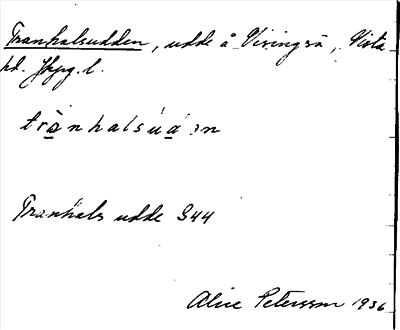 Tranhalsudden, udde å Visingsö, Vista
hd. Jkpg. l.
trànhalsúdən
Tranhals udde S44
Alice Petersson 1936